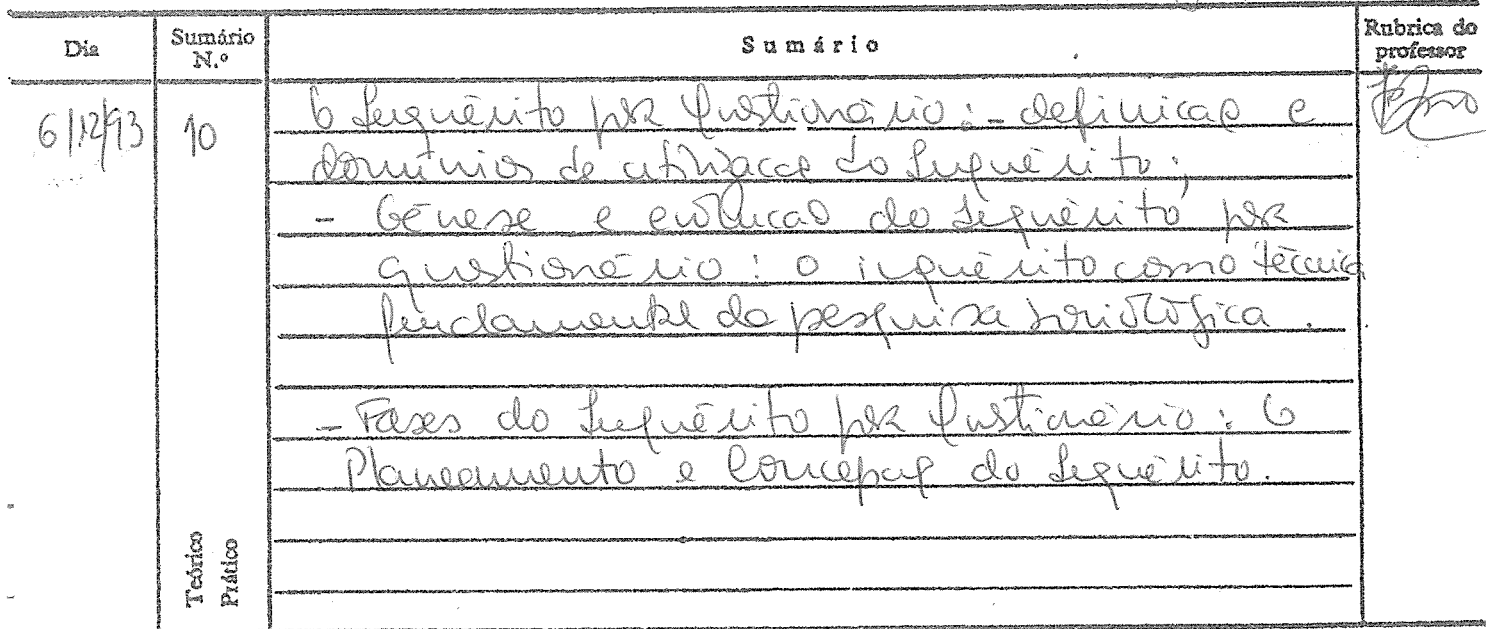 Dia
Sumário N.º
Sumário
Rubrica do professor
6/12/93
10
O Inquérito por Questionário: - definição e
domínios de utilização do Inquérito;
- Génese e evolução do Inquérito por
questionário: o inquérito como técnica
fundamental da pesquisa sociológica.
- Fases do Inquérito por Questionário: O
Planeamento e Concepção do Inquérito.
Teórico
Prático